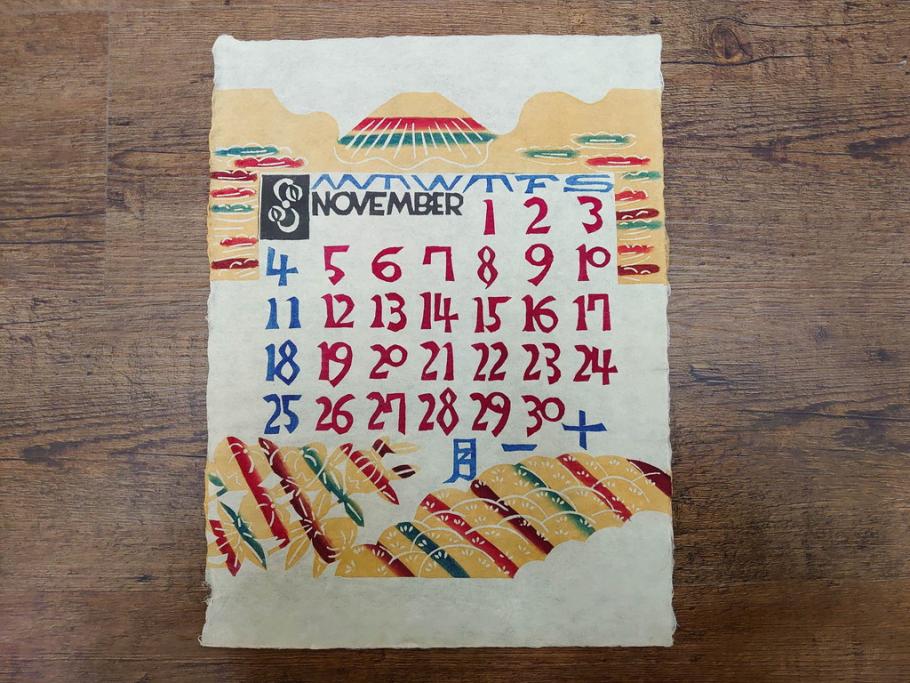 M T W T F S
NOVEMBER
1 2 3
4 5 6 7 8 9 10
11 12 13 14 15 16 17
18 19 20 21 22 23 24
25 26 27 28 29 30
十一月